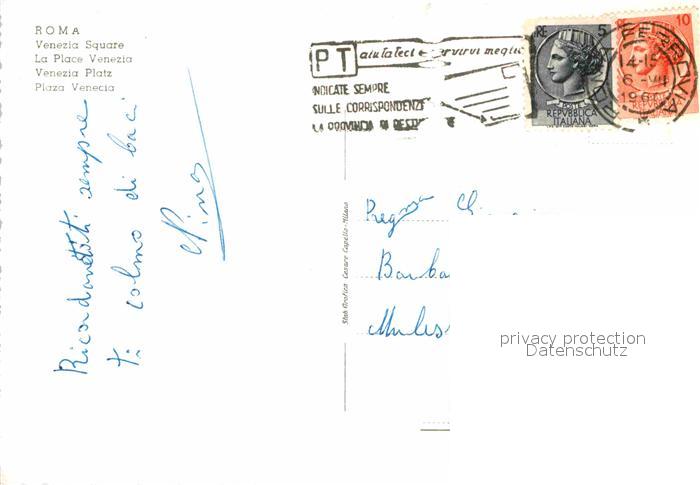 ROMA
Venezia Square
La Place Venezia
Venezia Platz
Plaza Venecia
PT aiutateci e servirvi meglio
INDICATE SEMPRE
SULLE CORRISPONDENZE
LA PROVINCIA DI DEST
5
POSTE
REPVBBLICA
ITALIANA
10
FERROVIA
14-15
6-VII
196
Ricordandoti sempre
ti colmo di baci
Pino
Stab. Grafico Cesare Capello - Milano
privacy protection
Datenschutz